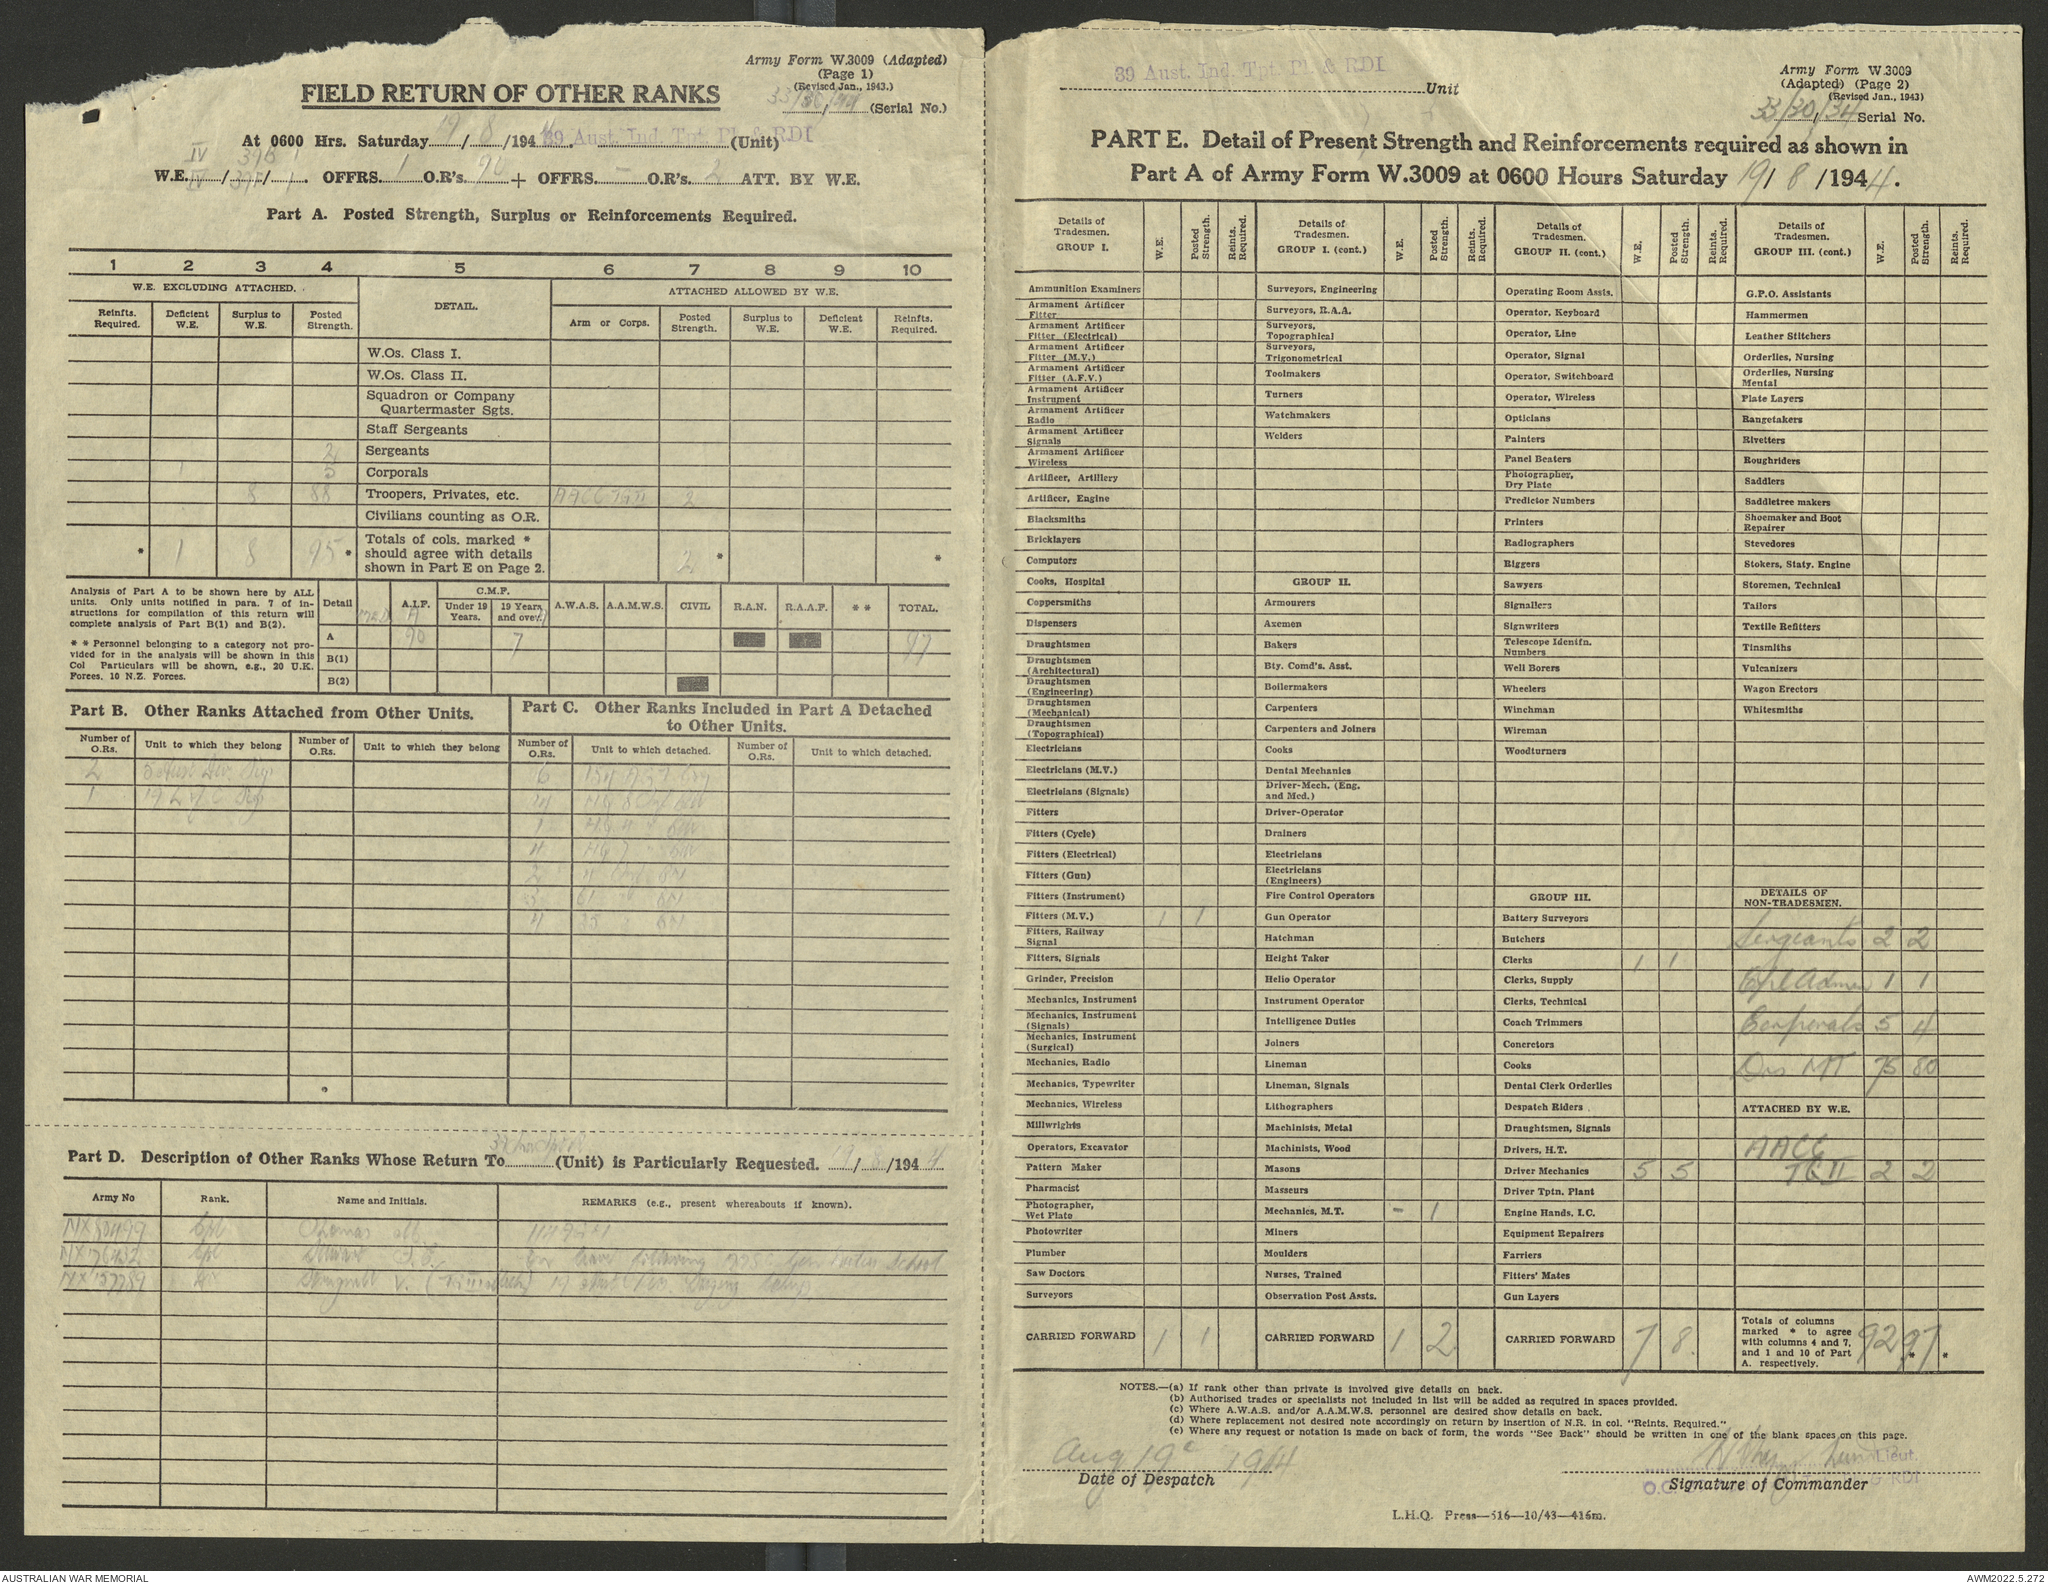 Army Form W.3009 (Adapted)
(Page 1)
(Revised Jan., 1943.)
(Serial No.)
FIELD RETURN OF OTHER RANKS
At 0600 Hrs. Saturday 19/8/1944 39 Aust. Ind. Tpt. Pl. & RDI (Unit)
IV 396 1
W.E. IV / 397 / 1. OFFRS. 1 O.R's. 90 + OFFRS. – O.R's. 2 ATT. BY W.E.
Part A. Posted Strength, Surplus or Reinforcements Required.
1 2 3 4 5 6 7 8 9 10
W.E. EXCLUDING ATTACHED. DETAIL. ATTACHED ALLOWED BY W.E.
Reinfts. Required. Deficient W.E. Surplus to W.E. Posted Strength. Arm or Corps. Posted Strength. Surplus to W.E. Deficient W.E. Reinfts. Required.
W.Os. Class I.
W.Os. Class II.
Squadron or Company
Quartermaster Sgts.
Staff Sergeants
2 Sergeants
1 5 Corporals
8 88 Troopers, Privates, etc. AACC TG II 2
Civilians counting as O.R.
* 1 8 95 * Totals of cols. marked *
should agree with details
shown in Part E on Page 2. 2 * *
Analysis of Part A to be shown here by ALL
units. Only units notified in para. 7 of in-
structions for compilation of this return will
complete analysis of Part B(1) and B(2).
* * Personnel belonging to a category not pro-
vided for in the analysis will be shown in this
Col Particulars will be shown, e.g., 20 U.K.
Forces, 10 N.Z. Forces.
Detail A.I.F. C.M.F. Under 19 Years. 19 Years and over. A.W.A.S. A.A.M.W.S. CIVIL R.A.N. R.A.A.F. * * TOTAL.
A 90 7 97
B(1)
B(2)
Part B. Other Ranks Attached from Other Units.
Part C. Other Ranks Included in Part A Detached
to Other Units.
Number of O.Rs. Unit to which they belong Number of O.Rs. Unit to which they belong Number of O.Rs. Unit to which detached. Number of O.Rs. Unit to which detached.
2 5 Aust Div. Sigs 6
1 19 L of C Sigs 4
1
4 HQ 7
2
3 61
4 35
Part D. Description of Other Ranks Whose Return To (Unit) is Particularly Requested. 19/8/1944
Army No Rank. Name and Initials. REMARKS (e.g., present whereabouts if known).
Cpl Thomas
NX76432 Cpl
NX157789 V.
39 Aust. Ind. Tpt. Pl. & RDI Unit
Army Form W.3009
(Adapted) (Page 2)
(Revised Jan., 1943)
33/30/34 Serial No.
PART E. Detail of Present Strength and Reinforcements required as shown in
Part A of Army Form W.3009 at 0600 Hours Saturday 19/8/1944.
Details of Tradesmen. GROUP I. W.E. Posted Strength. Reints. Required.
Ammunition Examiners
Armament Artificer Fitter
Armament Artificer Fitter (Electrical)
Armament Artificer Fitter (M.V.)
Armament Artificer Fitter (A.F.V.)
Armament Artificer Instrument
Armament Artificer Radio
Armament Artificer Signals
Armament Artificer Wireless
Artificer, Artillery
Artificer, Engine
Blacksmiths
Bricklayers
Computors
Cooks, Hospital
Coppersmiths
Dispensers
Draughtsmen
Draughtsmen (Architectural)
Draughtsmen (Engineering)
Draughtsmen (Mechanical)
Draughtsmen (Topographical)
Electricians
Electricians (M.V.)
Electricians (Signals)
Fitters
Fitters (Cycle)
Fitters (Electrical)
Fitters (Gun)
Fitters (Instrument)
Fitters (M.V.) 1 1
Fitters, Railway Signal
Fitters, Signals
Grinder, Precision
Mechanics, Instrument
Mechanics, Instrument (Signals)
Mechanics, Instrument (Surgical)
Mechanics, Radio
Mechanics, Typewriter
Mechanics, Wireless
Millwrights
Operators, Excavator
Pattern Maker
Pharmacist
Photographer, Wet Plate
Photowriter
Plumber
Saw Doctors
Surveyors
CARRIED FORWARD 1 1
Details of Tradesmen. GROUP I. (cont.) W.E. Posted Strength. Reints. Required.
Surveyors, Engineering
Surveyors, R.A.A.
Surveyors, Topographical
Surveyors, Trigonometrical
Toolmakers
Turners
Watchmakers
Welders
GROUP II.
Armourers
Axemen
Bakers
Bty. Comd's. Asst.
Boilermakers
Carpenters
Carpenters and Joiners
Cooks
Dental Mechanics
Driver-Mech. (Eng. and Med.)
Driver-Operator
Drainers
Electricians
Electricians (Engineers)
Fire Control Operators
Gun Operator
Hatchman
Height Taker
Helio Operator
Instrument Operator
Intelligence Duties
Joiners
Lineman
Lineman, Signals
Lithographers
Machinists, Metal
Machinists, Wood
Masons
Masseurs
Mechanics, M.T. – 1
Miners
Moulders
Nurses, Trained
Observation Post Assts.
CARRIED FORWARD 1 2
Details of Tradesmen. GROUP II. (cont.) W.E. Posted Strength. Reints. Required.
Operating Room Assts.
Operator, Keyboard
Operator, Line
Operator, Signal
Operator, Switchboard
Operator, Wireless
Opticians
Painters
Panel Beaters
Photographer, Dry Plate
Predictor Numbers
Printers
Radiographers
Riggers
Sawyers
Signallers
Signwriters
Telescope Identifn. Numbers
Well Borers
Wheelers
Winchman
Wireman
Woodturners
GROUP III.
Battery Surveyors
Butchers
Clerks 1 1
Clerks, Supply
Clerks, Technical
Coach Trimmers
Concretors
Cooks
Dental Clerk Orderlies
Despatch Riders
Draughtsmen, Signals
Drivers, H.T.
Driver Mechanics 5 5
Driver Tptn. Plant
Engine Hands, I.C.
Equipment Repairers
Farriers
Fitters' Mates
Gun Layers
CARRIED FORWARD 7 8
Details of Tradesmen. GROUP III. (cont.) W.E. Posted Strength. Reints. Required.
G.P.O. Assistants
Hammermen
Leather Stitchers
Orderlies, Nursing
Orderlies, Nursing Mental
Plate Layers
Rangetakers
Rivetters
Roughriders
Saddlers
Saddletree makers
Shoemaker and Boot Repairer
Stevedores
Stokers, Staty. Engine
Storemen, Technical
Tailors
Textile Refitters
Tinsmiths
Vulcanizers
Wagon Erectors
Whitesmiths
DETAILS OF NON-TRADESMEN.
Sergeants 2 2
Cpl Admin 1 1
Corporals 5 4
Dvs MT 75 80
ATTACHED BY W.E.
AACC
TG II 2 2
Totals of columns marked * to agree with columns 4 and 7, and 1 and 10 of Part A. respectively. 92 97 * *
NOTES.—(a) If rank other than private is involved give details on back.
(b) Authorised trades or specialists not included in list will be added as required in spaces provided.
(c) Where A.W.A.S. and/or A.A.M.W.S. personnel are desired show details on back.
(d) Where replacement not desired note accordingly on return by insertion of N.R. in col. "Reints. Required."
(e) Where any request or notation is made on back of form, the words "See Back" should be written in one of the blank spaces on this page.
Aug 19 1944
Date of Despatch
Lieut.
O.C. RDI
Signature of Commander
L.H.Q. Press—516—10/43—416m.
AUSTRALIAN WAR MEMORIAL
AWM2022.5.272